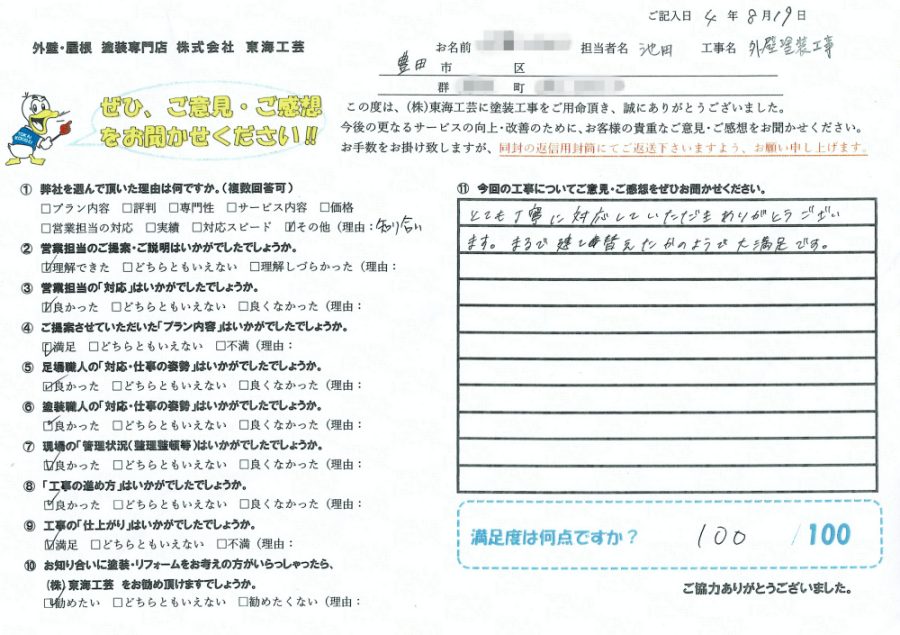 ご記入日 4 年 8 月 19 日
外壁・屋根 塗装専門店 株式会社 東海工芸
お名前 担当者名 池田 工事名 外壁塗装工事
豊田 市 区
群 町
ぜひ、ご意見・ご感想
をお聞かせください!!
この度は、(株)東海工芸に塗装工事をご用命頂き、誠にありがとうございました。
今後の更なるサービスの向上・改善のために、お客様の貴重なご意見・ご感想をお聞かせください。
お手数をお掛け致しますが、同封の返信用封筒にてご返送下さいますよう、お願い申し上げます。
① 弊社を選んで頂いた理由は何ですか。(複数回答可)
□プラン内容 □評判 □専門性 □サービス内容 □価格
□営業担当の対応 □実績 □対応スピード ☑その他(理由:知り合い
② 営業担当のご提案・ご説明はいかがでしたでしょうか。
☑理解できた □どちらともいえない □理解しづらかった(理由:
③ 営業担当の「対応」はいかがでしたでしょうか。
☑良かった □どちらともいえない □良くなかった(理由:
④ ご提案させていただいた「プラン内容」はいかがでしたでしょうか。
☑満足 □どちらともいえない □不満(理由:
⑤ 足場職人の「対応・仕事の姿勢」はいかがでしたでしょうか。
☑良かった □どちらともいえない □良くなかった(理由:
⑥ 塗装職人の「対応・仕事の姿勢」はいかがでしたでしょうか。
☑良かった □どちらともいえない □良くなかった(理由:
⑦ 現場の「管理状況(整理整頓等)はいかがでしたでしょうか。
☑良かった □どちらともいえない □良くなかった(理由:
⑧ 「工事の進め方」はいかがでしたでしょうか。
☑良かった □どちらともいえない □良くなかった(理由:
⑨ 工事の「仕上がり」はいかがでしたでしょうか。
☑満足 □どちらともいえない □不満(理由:
⑩ お知り合いに塗装・リフォームをお考えの方がいらっしゃったら、
(株)東海工芸 をお勧め頂けますでしょうか。
☑勧めたい □どちらともいえない □勧めたくない(理由:
⑪ 今回の工事についてご意見・ご感想をぜひお聞かせください。
とても丁寧に対応していただきありがとうござい
ます。まるで建て替えたかのようで大満足です。
満足度は何点ですか? 100 /100
ご協力ありがとうございました。